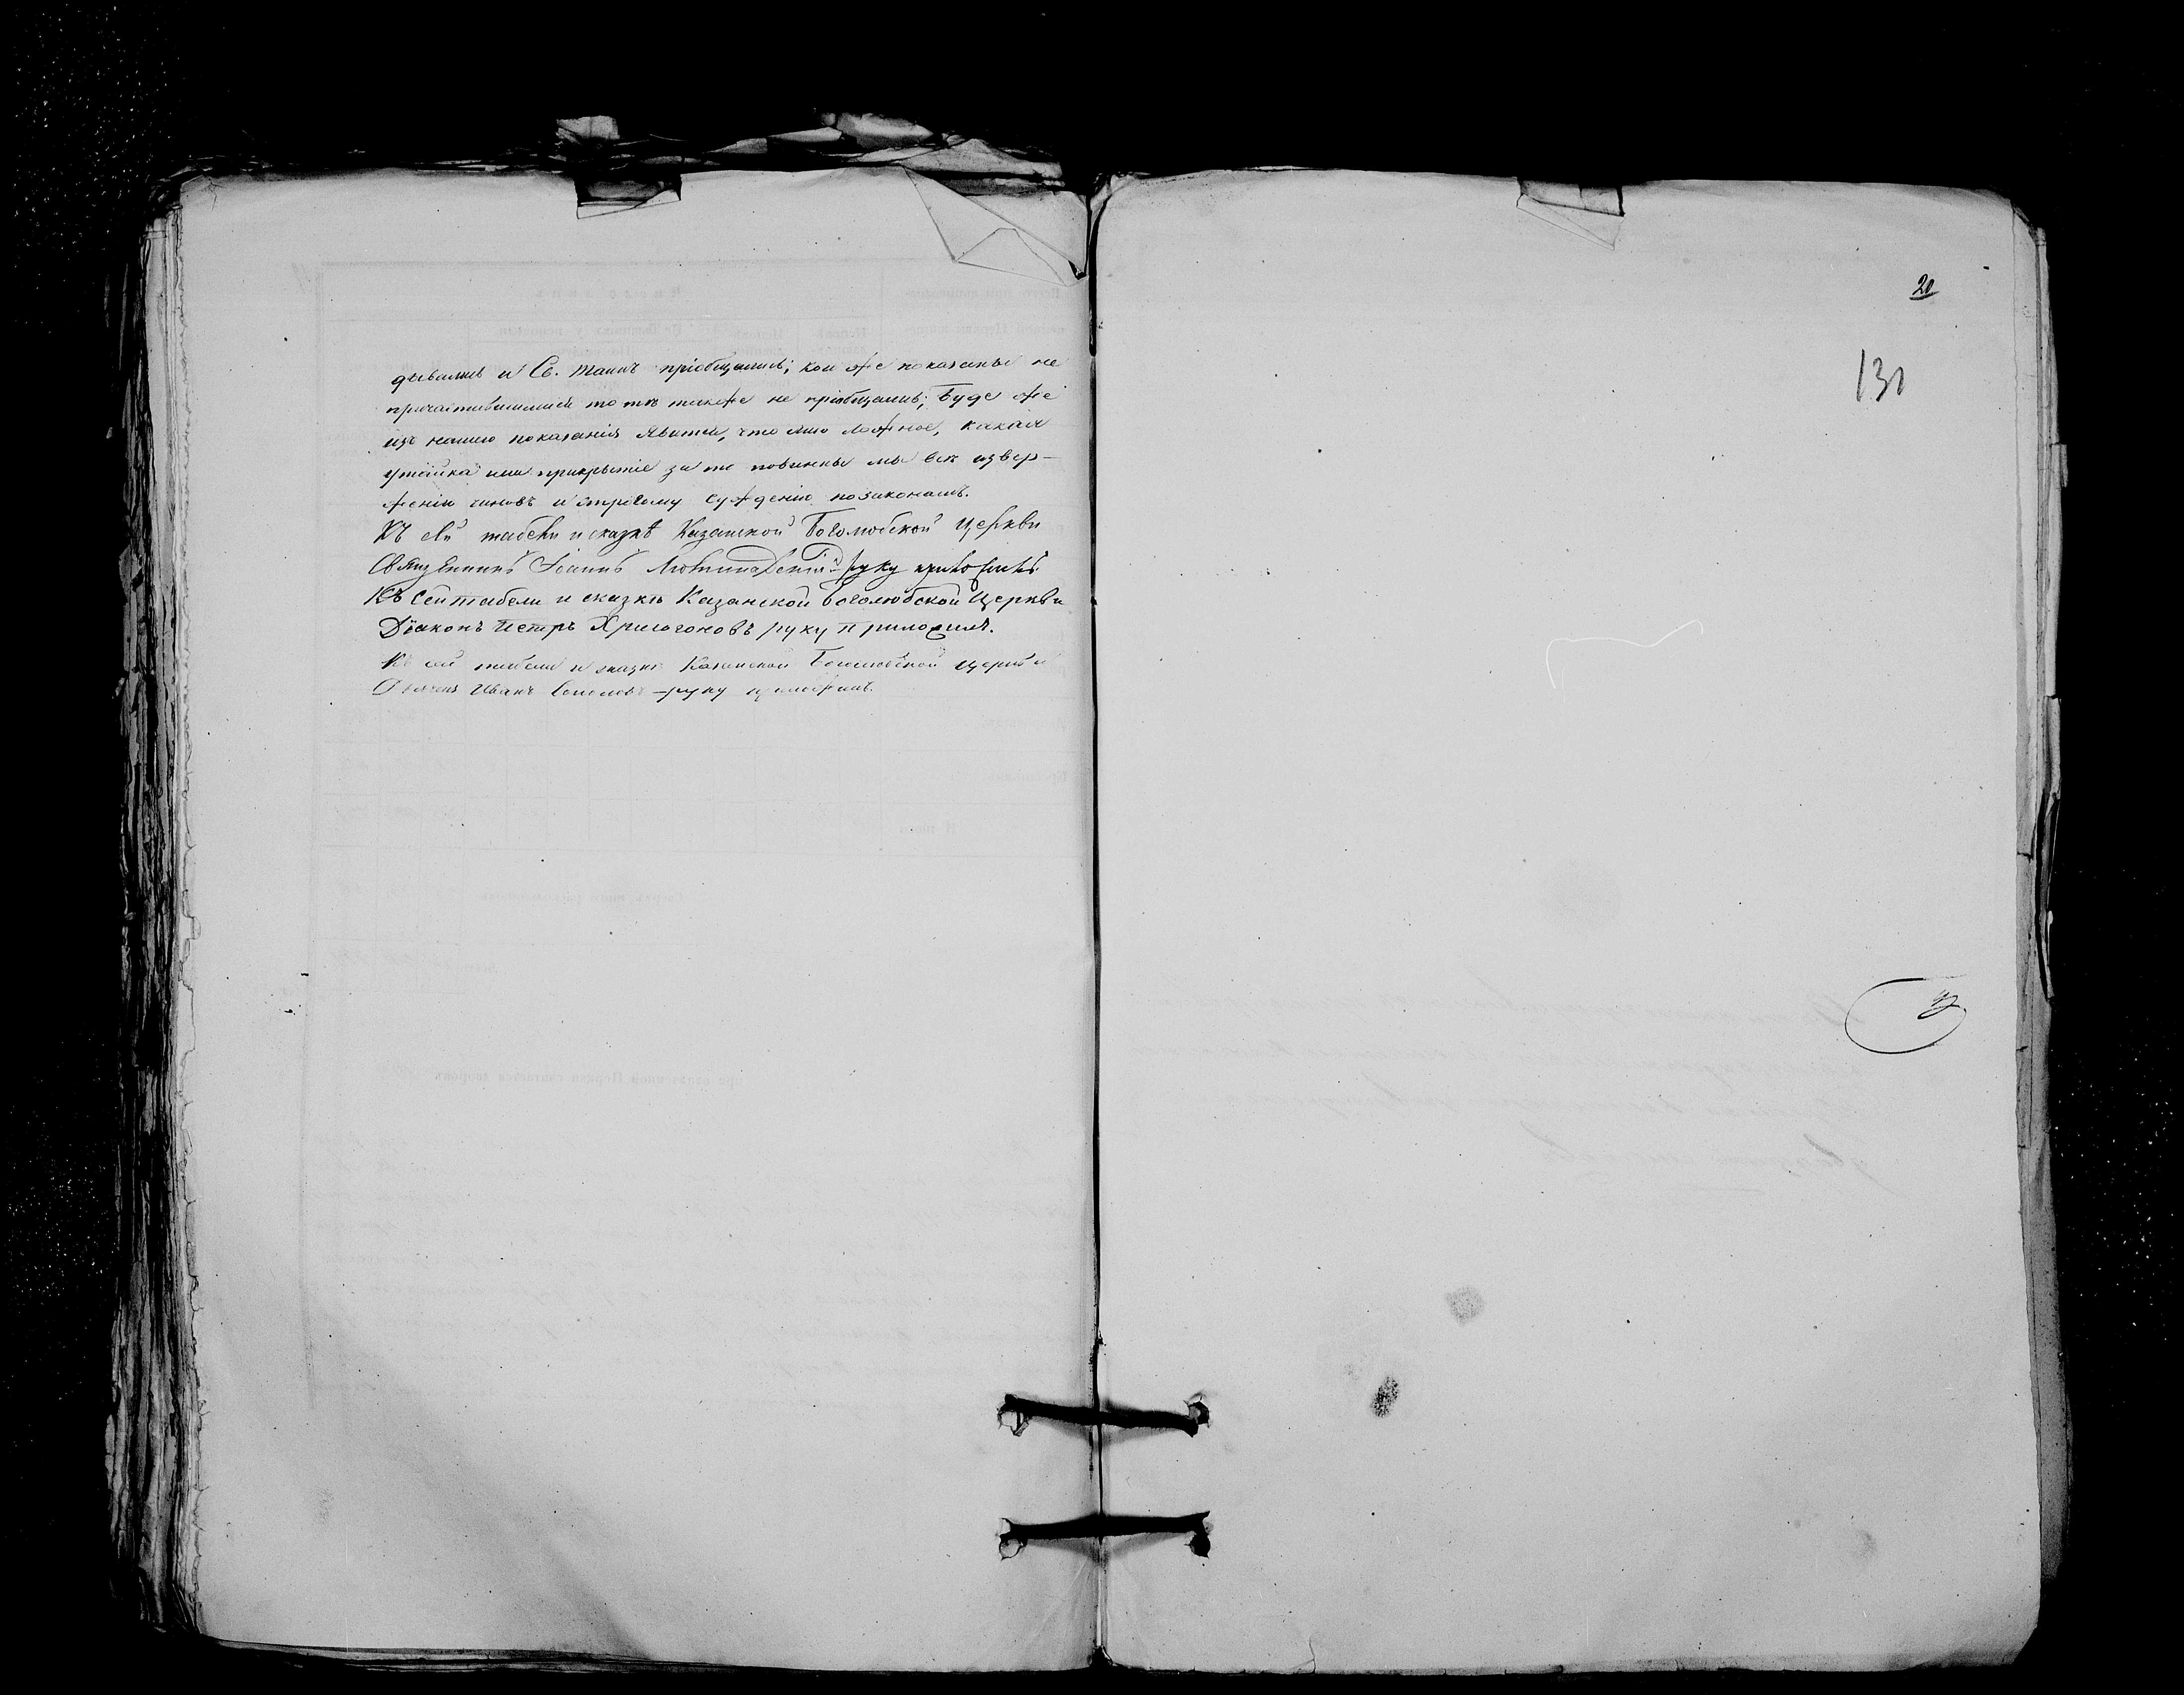 дывались и Св. Таинъ пріобщались; кои же показаны не
причастившимися то тѣ также не пріобщались; Буде же
изъ нашего показанія явится, что либо ложное, какая
утайка или прикрытіе за то повинны мы всѣ извер-
женію чиновъ и строгому сужденію по законамъ.
Къ сей табели и сказкѣ Казанской Боголюбской Церкви
Священникъ Іоаннъ руку приложилъ.
Къ сей табели и сказкѣ Казанской Боголюбской Церкви
Діаконъ Петръ Хрисогоновъ руку приложилъ.
Къ сей табели и сказкѣ Казанской Боголюбской церкви
Дьячекъ Иванъ руку приложилъ.
20
131